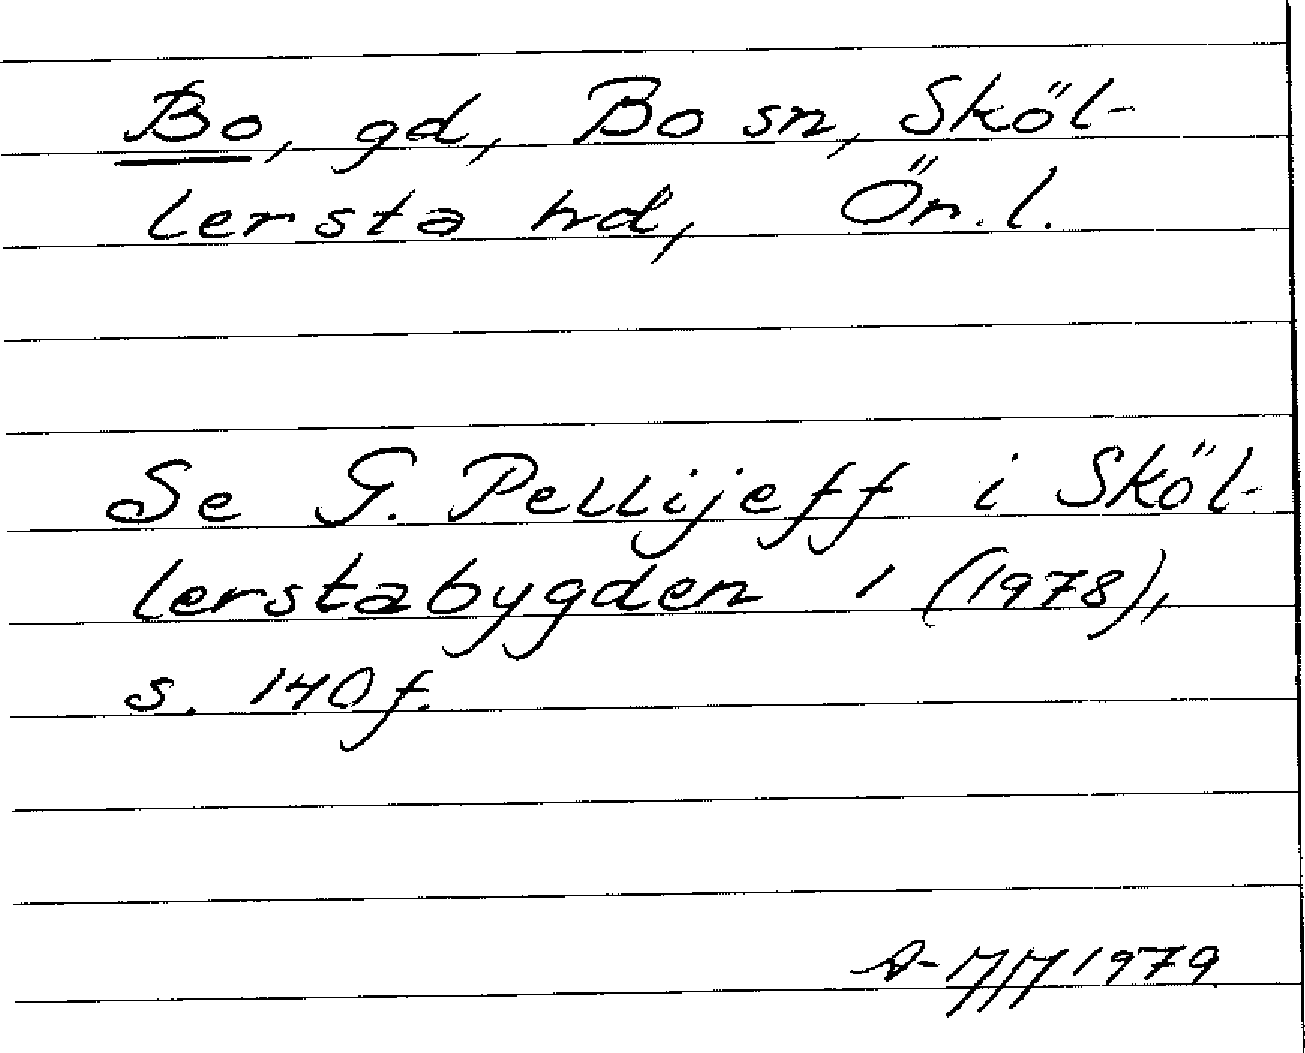 Bo, gd, Bo sn, Sköl-
lersta hd, Ör. l.
Se G. Pellijeff i Sköl-
lerstabygden 1 (1978),
s. 140 f.
1979